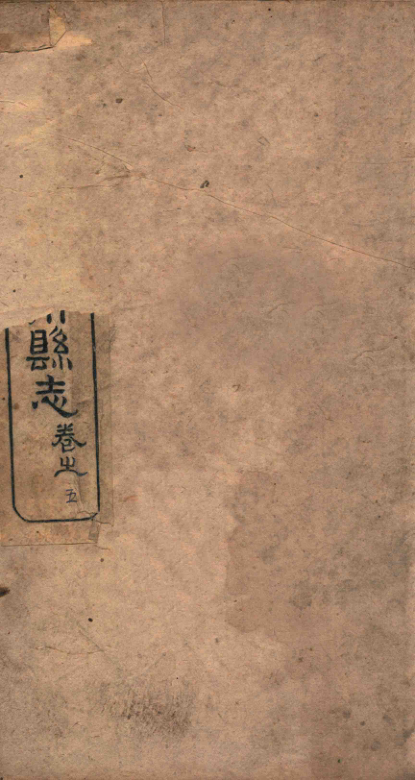 縣志卷之五